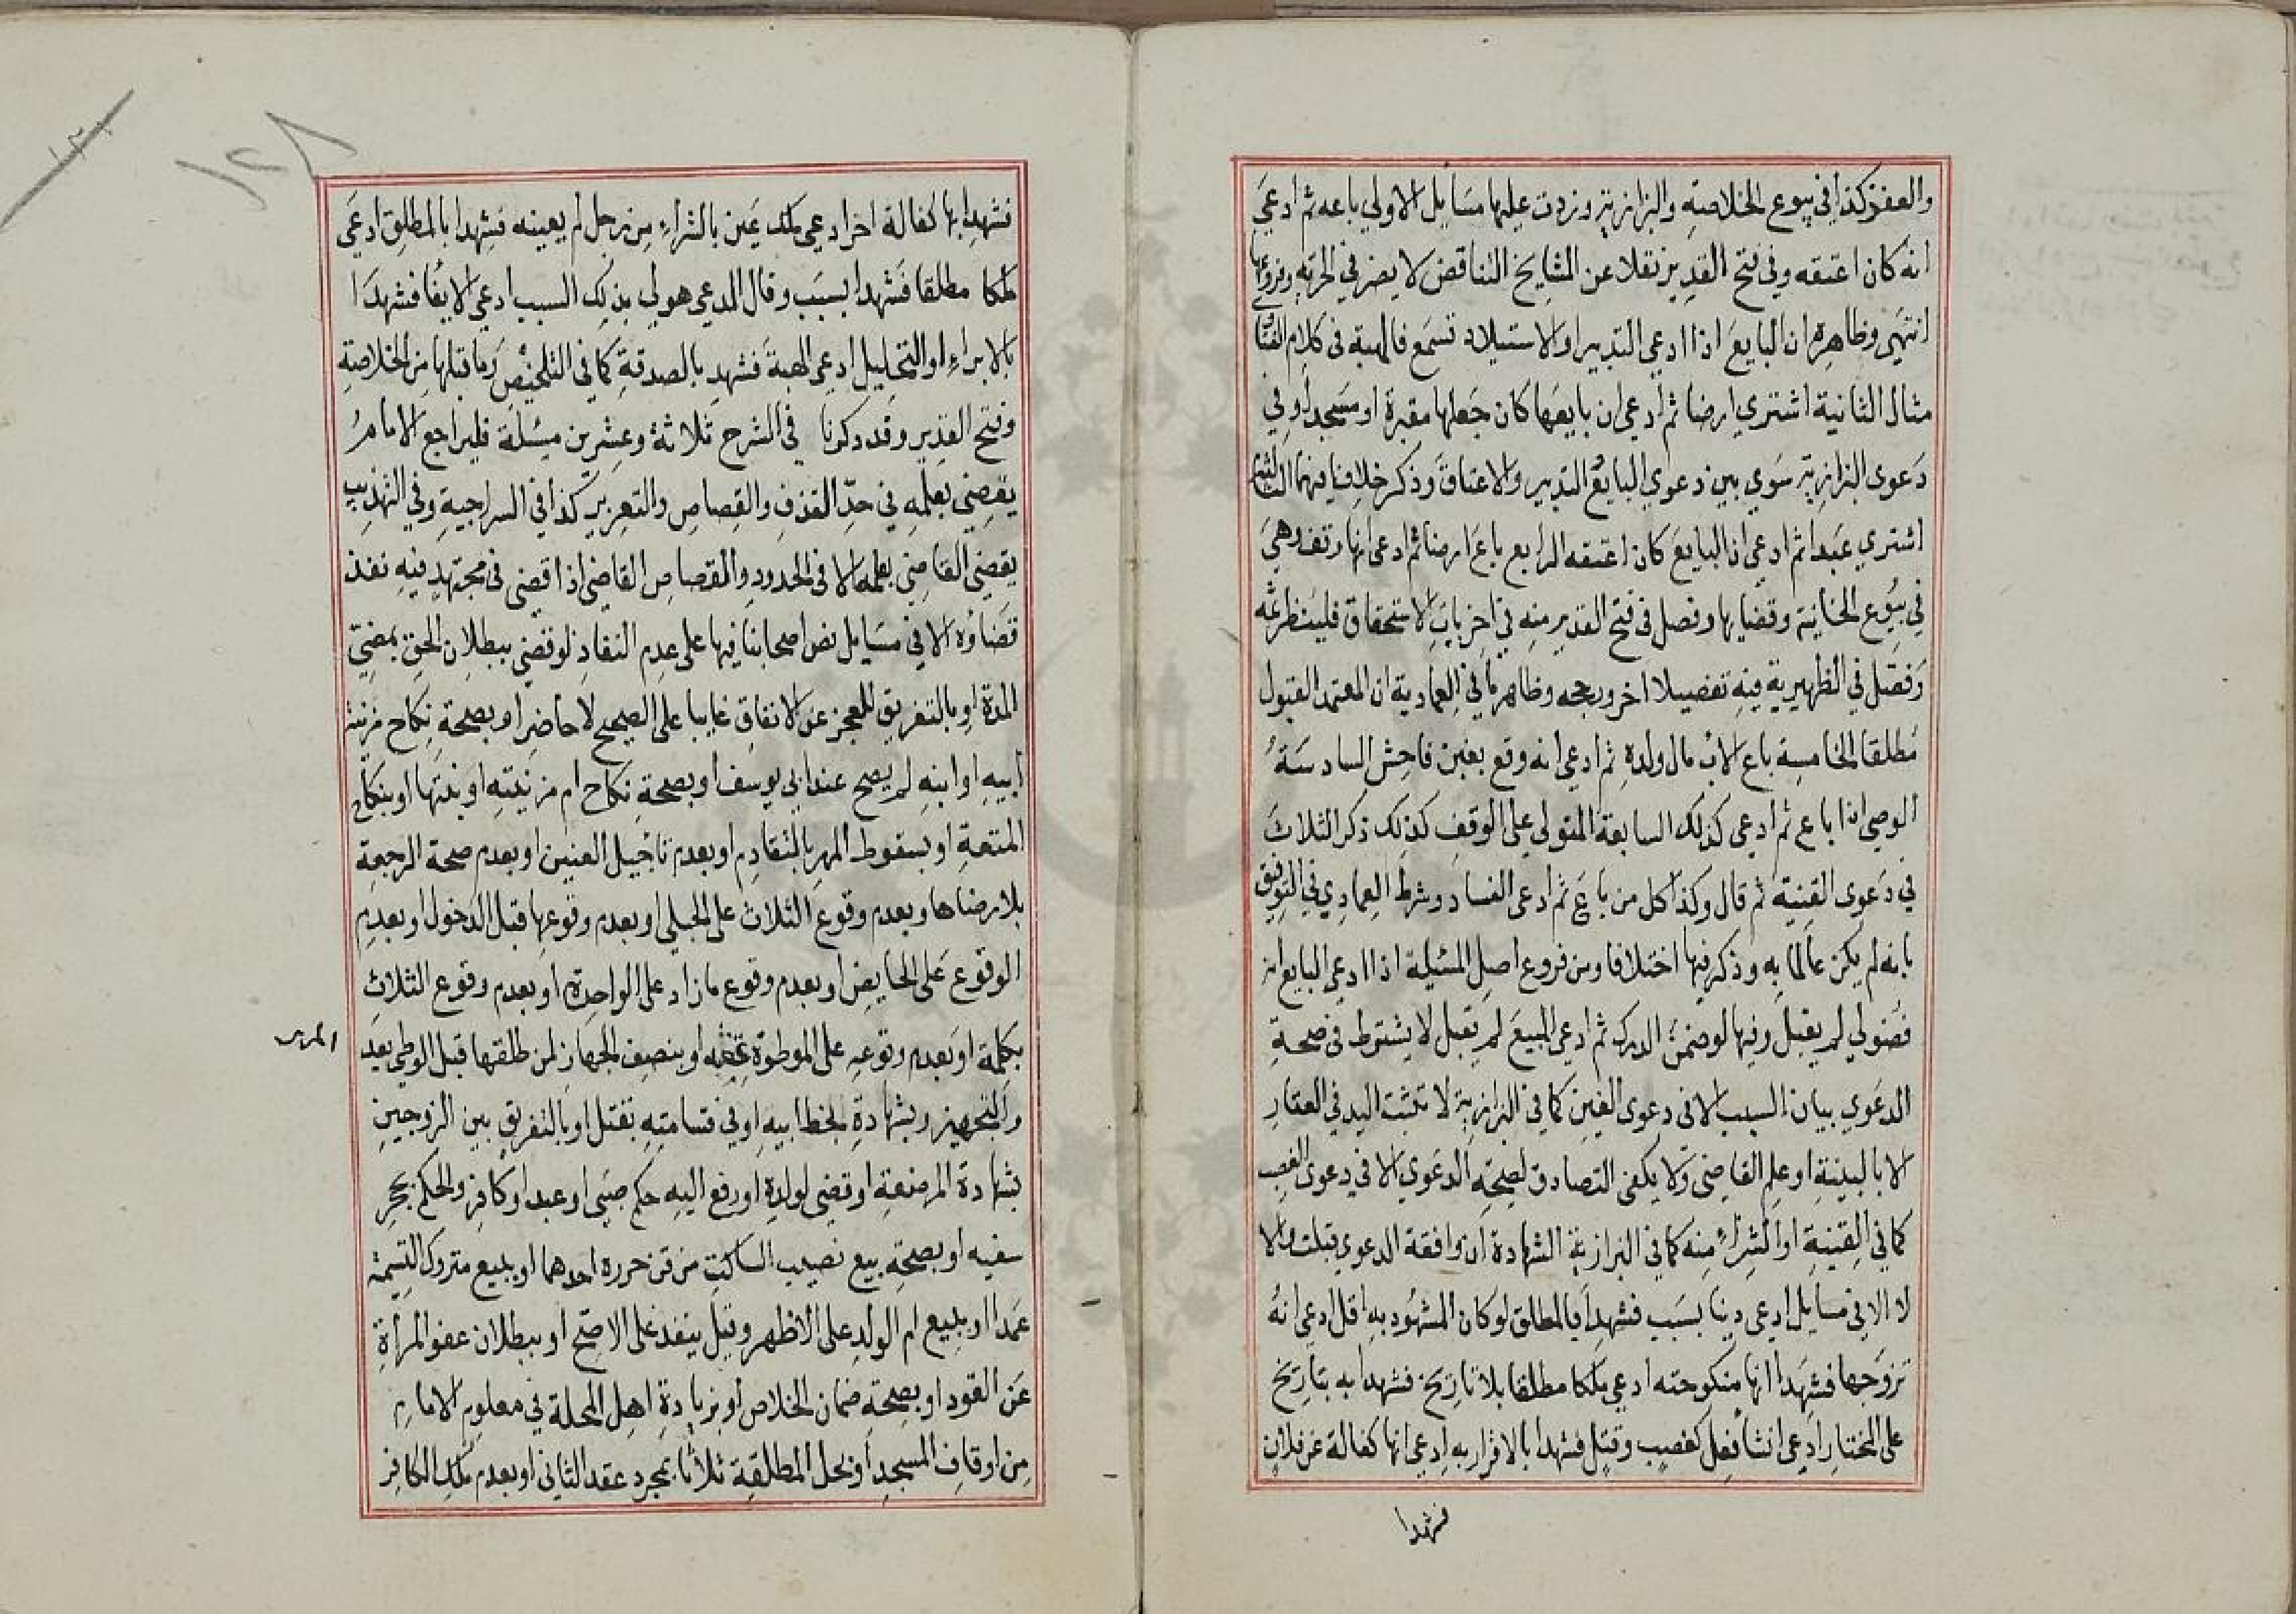 والعفو كذا في بيوع الخلاصة والبزازية وزدت عليها مسايل الاولي باعه ثم ادعي
انه كان اعتقه وفي فتح القدير نقلا عن المشايخ التناقض لا يضر في الحرية وفروعها
انتهي وظاهره ان البايع اذا ادعي التدبير او الاستيلاد تسمع فالهبة في كلام الفتاوي
مثال الثانية اشتري ارضا ثم ادعي ان بايعها كان جعلها مقبرة او مسجدا وفي
دعوى البزازية سوي بين دعوي البايع التدبير والاعتاق وذكر خلافا فيهما الثالثة
اشتري عبدا ثم ادعي ان البايع كان اعتقه الرابع باع ارضا ثم ادعى انها وقف وهي
في بيوع الخانية وقضايها وفصل في فتح القدير منه في اخر باب الاستحقاق فلينظر ثمه
وفصل في الظهيرية فيه تفصيلا اخر ورجحه وظاهر ما في العمادية ان المعتمد القبول
مطلقا الخامسة باع الاب مال ولده ثم ادعي انه وقع بغبن فاحش السادسة
الوصي اذا باع ثم ادعي كذلك السابعة المتولي علي الوقف كذلك ذكر الثلاث
في دعوى القنية ثم قال وكذا كل من باع ثم ادعى الفساد وشرط العمادي في التوفيق
بانه لم يكن عالما به وذكر فيها اختلافا ومن فروع اصل المسئلة اذا ادعي البايع انه
فضولي لم يقبل وفيها لو ضمن الدرك ثم ادعي المبيع لم يقبل لا يشترط في صحة
الدعوي بيان السبب الا في دعوى العين كما في البزازية لا تثبت اليد في العقار
الا بالبينة او علم القاضي ولا يكفي التصادق لصحة الدعوي الا في دعوى الغصب
كما في القنية او الشراء منه كما في البزازية الشهادة ان وافقة الدعوي قبلت والا
لا الا في مسايل ادعي دينا بسبب فشهدا بالمطلق لو كان المشهود به اقل ادعي انه
تزوجها فشهدا انها منكوحته ادعي ملكا مطلقا بلا تاريخ فشهدا به بتاريخ
علي المختار ادعي انشا فعل كغصب وقتل فشهدا بالاقرار به ادعي انها كفالة عن فلان
فشهدا
فشهدا بها كفالة اخر ادعي ملك عين بالشراء من رجل لم يعينه فشهدا بالمطلق ادعي
ملكا مطلقا فشهدا بسبب وقال المدعي هو لي بذلك السبب ادعي الايفا فشهدا
بالابراء او التحليل ادعي الهبة فشهد بالصدقة كما في التلخيص وما قبلها من الخلاصة
وفتح القدير وقد ذكرنا في الشرح ثلاثة وعشرين مسئلة فليراجع الامام
يقضي بعلمه في حد القذف والقصاص والتعزير كذا في السراجية وفي التهذيب
يقضي القاضي بعلمه الا في الحدود والقصاص القاضي اذا قضي في مجتهد فيه نفذ
قضاؤه الا في مسايل نص اصحابنا فيها على عدم النفاذ لو قضي ببطلان الحق بمضي
المدة او بالتفريق للعجز عن الانفاق غايبا على الصحيح لا حاضرا او بصحة نكاح مزنية
ابيه او ابنه لم يصح عند ابي يوسف او بصحة نكاح ام مزنيته او بنتها او بنكاح
المتعة او بسقوط المهر بالتقادم او بعدم تاجيل العنين او بعدم صحة الرجعة
بلا رضاها وبعدم وقوع الثلاث على الحبلي او بعدم وقوعها قبل الدخول او بعدم
الوقوع على الحايض او بعدم وقوع ما زاد على الواحدة او بعدم وقوع الثلاث
بكلمة او بعدم وقوعه على الموطوة عقبه او بنصف الجهاز لمن طلقها قبل الوطي بعد
المهر
والتجهيز وبشهادة بخط ابيه او في قسامة بقتل او بالتفريق بين الزوجين
بشهادة المرضعة او قضي لولده او رفع اليه حكم صبي او عبد او كافر والحكم بحجر
سفيه او بصحة بيع نصيب الساكت من قن حرره احدهما او ببيع متروك التسمية
عمدا او ببيع ام الولد على الاظهر وقيل ينفذ على الاصح او ببطلان عفو المرأة
عن القود او بصحة ضمان الخلاص او بزيادة اهل المحلة في معلوم الامام
من اوقاف المسجد او بحل المطلقة ثلاثا بمجرد عقد الثاني او بعدم ملك الكافر
١٢٨